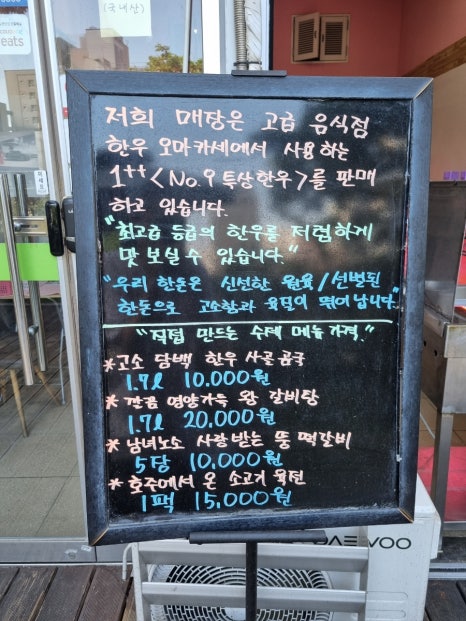 (국내산)
eats
저희 매장은 고급 음식점
한우 오마카세에서 사용하는
1++<No.9 특상한우>를 판매
하고 있습니다.
"최고급 등급의 한우를 저렴하게
맛 보실 수 있습니다."
"우리 한돈은 신선한 원육/선별된
한돈으로 고소함과 육질이 뛰어납니다."
"직접 만드는 수제 메뉴가격."
*고소 담백 한우 사골곰국
1.7l 10.000원
*깔끔 영양가득 왕 갈비탕
1.7l 20.000원
*남녀노소 사랑받는 뚱 떡갈비
5장 10.000원
*호주에서 온 소고기 육전
1팩 15,000원
DAEWOO